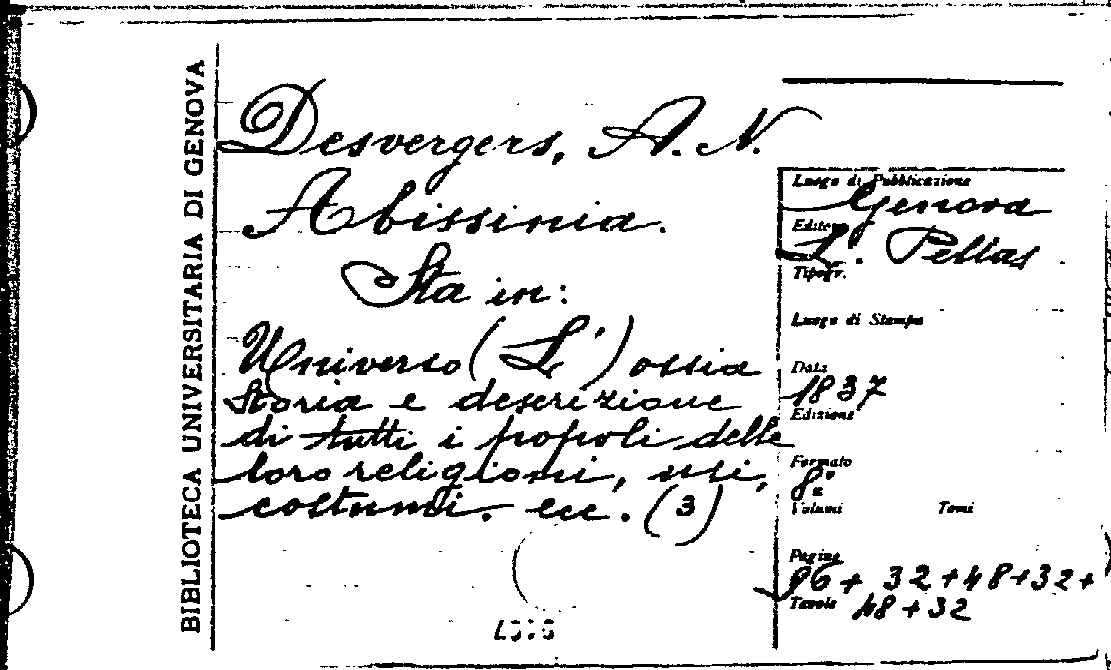 BIBLIOTECA UNIVERSITARIA DI GENOVA
Desvergers, A. N.
Abissinia.
Sta in:
Universo (L') ossia
storia e descrizione
di tutti i popoli delle
loro religioni, usi,
costumi. ecc. (3)
Luogo di Pubblicazione
Genova
Editore
L. Pellas
Tipogr.
Luogo di Stampa
Data
1837
Edizione
Formato
8º
Volumi Tomi
Pagine
96 + 32 + 48 + 32 +
Tavole 48 + 32